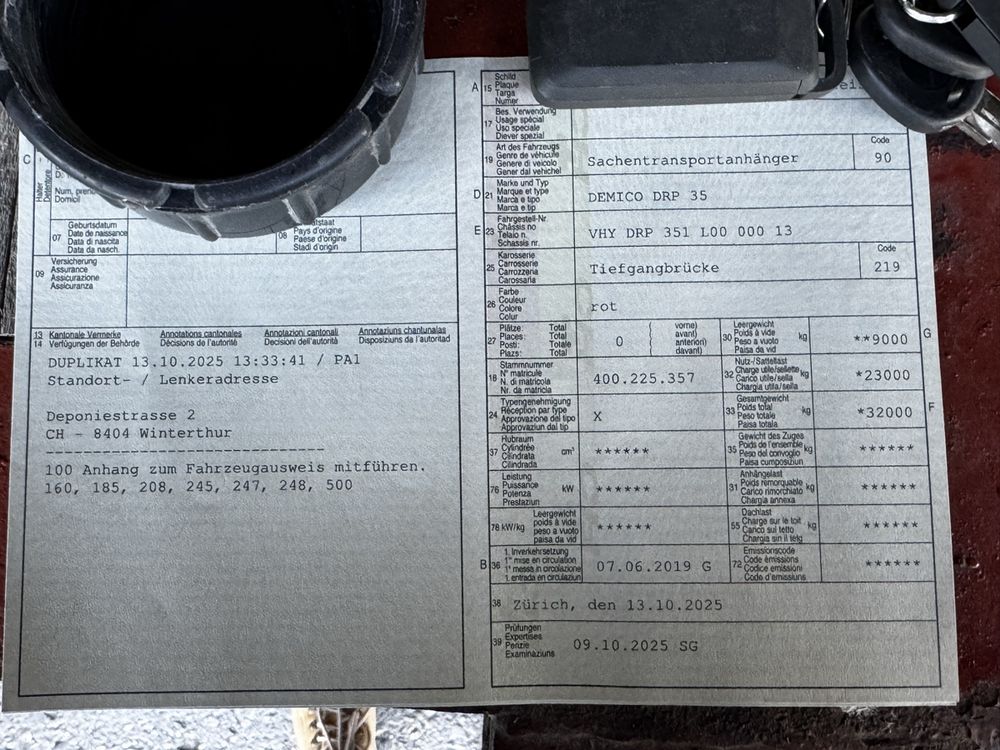 C
Halter
Détenteur
Num, pren
Domicil
07
Geburtsdatum
Date de naissance
Data di nascita
Data da nasch.
08
Pays d'origine
Paese d'origine
Stadi d'origin
09
Versicherung
Assurance
Assicurazione
Assicuranza
13
14
Kantonale Vermerke
Verfügungen der Behörde
Annotations cantonales
Décisions de l'autorité
Annotazioni cantonali
Decisioni dell'autorità
Annotaziuns chantunalas
Disposiziuns da l'autoritad
DUPLIKAT 13.10.2025 13:33:41 / PA1
Standort- / Lenkeradresse
Deponiestrasse 2
CH - 8404 Winterthur
100 Anhang zum Fahrzeugausweis mitführen.
160, 185, 208, 245, 247, 248, 500
A
15
Schild
Plaque
Targa
Numer
17
Bes. Verwendung
Usage spécial
Uso speciale
Diever spezial
19
Art des Fahrzeugs
Genre de véhicule
Genere di veicolo
Gener dal vehichel
Sachentransportanhänger
Code
90
D
21
Marke und Typ
Marque et type
Marca e tipo
Marca e tip
DEMICO DRP 35
E
23
Fahrgestell-Nr.
Châssis no
Telaio n.
Schassis nr.
VHY DRP 351 L00 000 13
25
Karosserie
Carrosserie
Carrozzeria
Carossaria
Tiefgangbrücke
Code
219
26
Farbe
Couleur
Colore
Colur
rot
27
Plätze: Total
Places: Total
Posti: Totale
Plazs: Total
0
vorne)
avant)
anteriori)
davant)
30
Leergewicht
Poids à vide
Peso a vuoto
Paisa da vid
kg
**9000
G
18
Stammnummer
N° matricule
N. di matricola
Nr. da matricla
400.225.357
32
Nutz-/Sattellast
Charge utile/sellette
Carico utile/sella
Chargia utila/sella
kg
*23000
24
Typengenehmigung
Réception par type
Approvazione del tipo
Approvaziun dal tip
X
33
Gesamtgewicht
Poids total
Peso totale
Paisa totala
kg
*32000
F
37
Hubraum
Cylindrée
Cilindrata
Cilindrada
cm³
******
35
Gewicht des Zuges
Poids de l'ensemble
Peso del convoglio
Paisa cumposiziun
kg
******
76
Leistung
Puissance
Potenza
Prestaziun
kW
******
31
Anhängelast
Poids remorquable
Carico rimorchiato
Chargia annexa
kg
******
78 kW/kg
Leergewicht
poids à vide
peso a vuoto
paisa da vid
******
55
Dachlast
Charge sur le toit
Carico sul tetto
Chargia sin il tetg
kg
******
B
36
1. Inverkehrsetzung
1re mise en circulation
1a messa in circolazione
1. entrada en circulaziun
07.06.2019 G
72
Emissionscode
Code émissions
Codice emissioni
Code d'emissiuns
******
38
Zürich, den 13.10.2025
39
Prüfungen
Expertises
Perizie
Examinaziuns
09.10.2025 SG